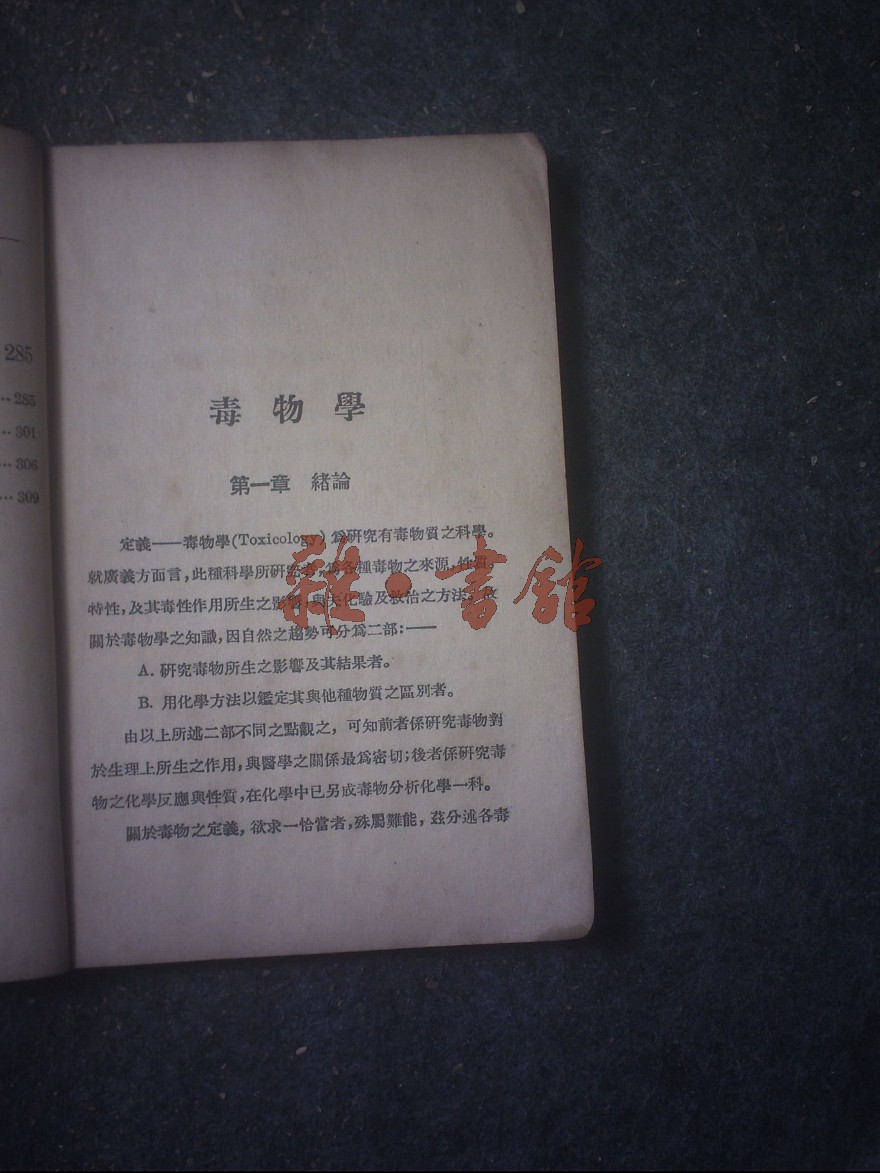 285
285
301
306
309
毒物學
第一章 緒論
定義——毒物學(Toxicology)爲研究有毒物質之科學。
就廣義方面言,此種科學所研究者,爲各種毒物之來源,性質,
特性,及其毒性作用所生之影響,與夫化驗及救治之方法。故
關於毒物學之知識,因自然之趨勢可分爲二部:——
A. 研究毒物所生之影響及其結果者。
B. 用化學方法以鑑定其與他種物質之區別者。
由以上所述二部不同之點觀之,可知前者係研究毒物對
於生理上所生之作用,與醫學之關係最爲密切;後者係研究毒
物之化學反應與性質,在化學中已另成毒物分析化學一科。
關於毒物之定義,欲求一恰當者,殊屬難能,茲分述各毒
雜·書館